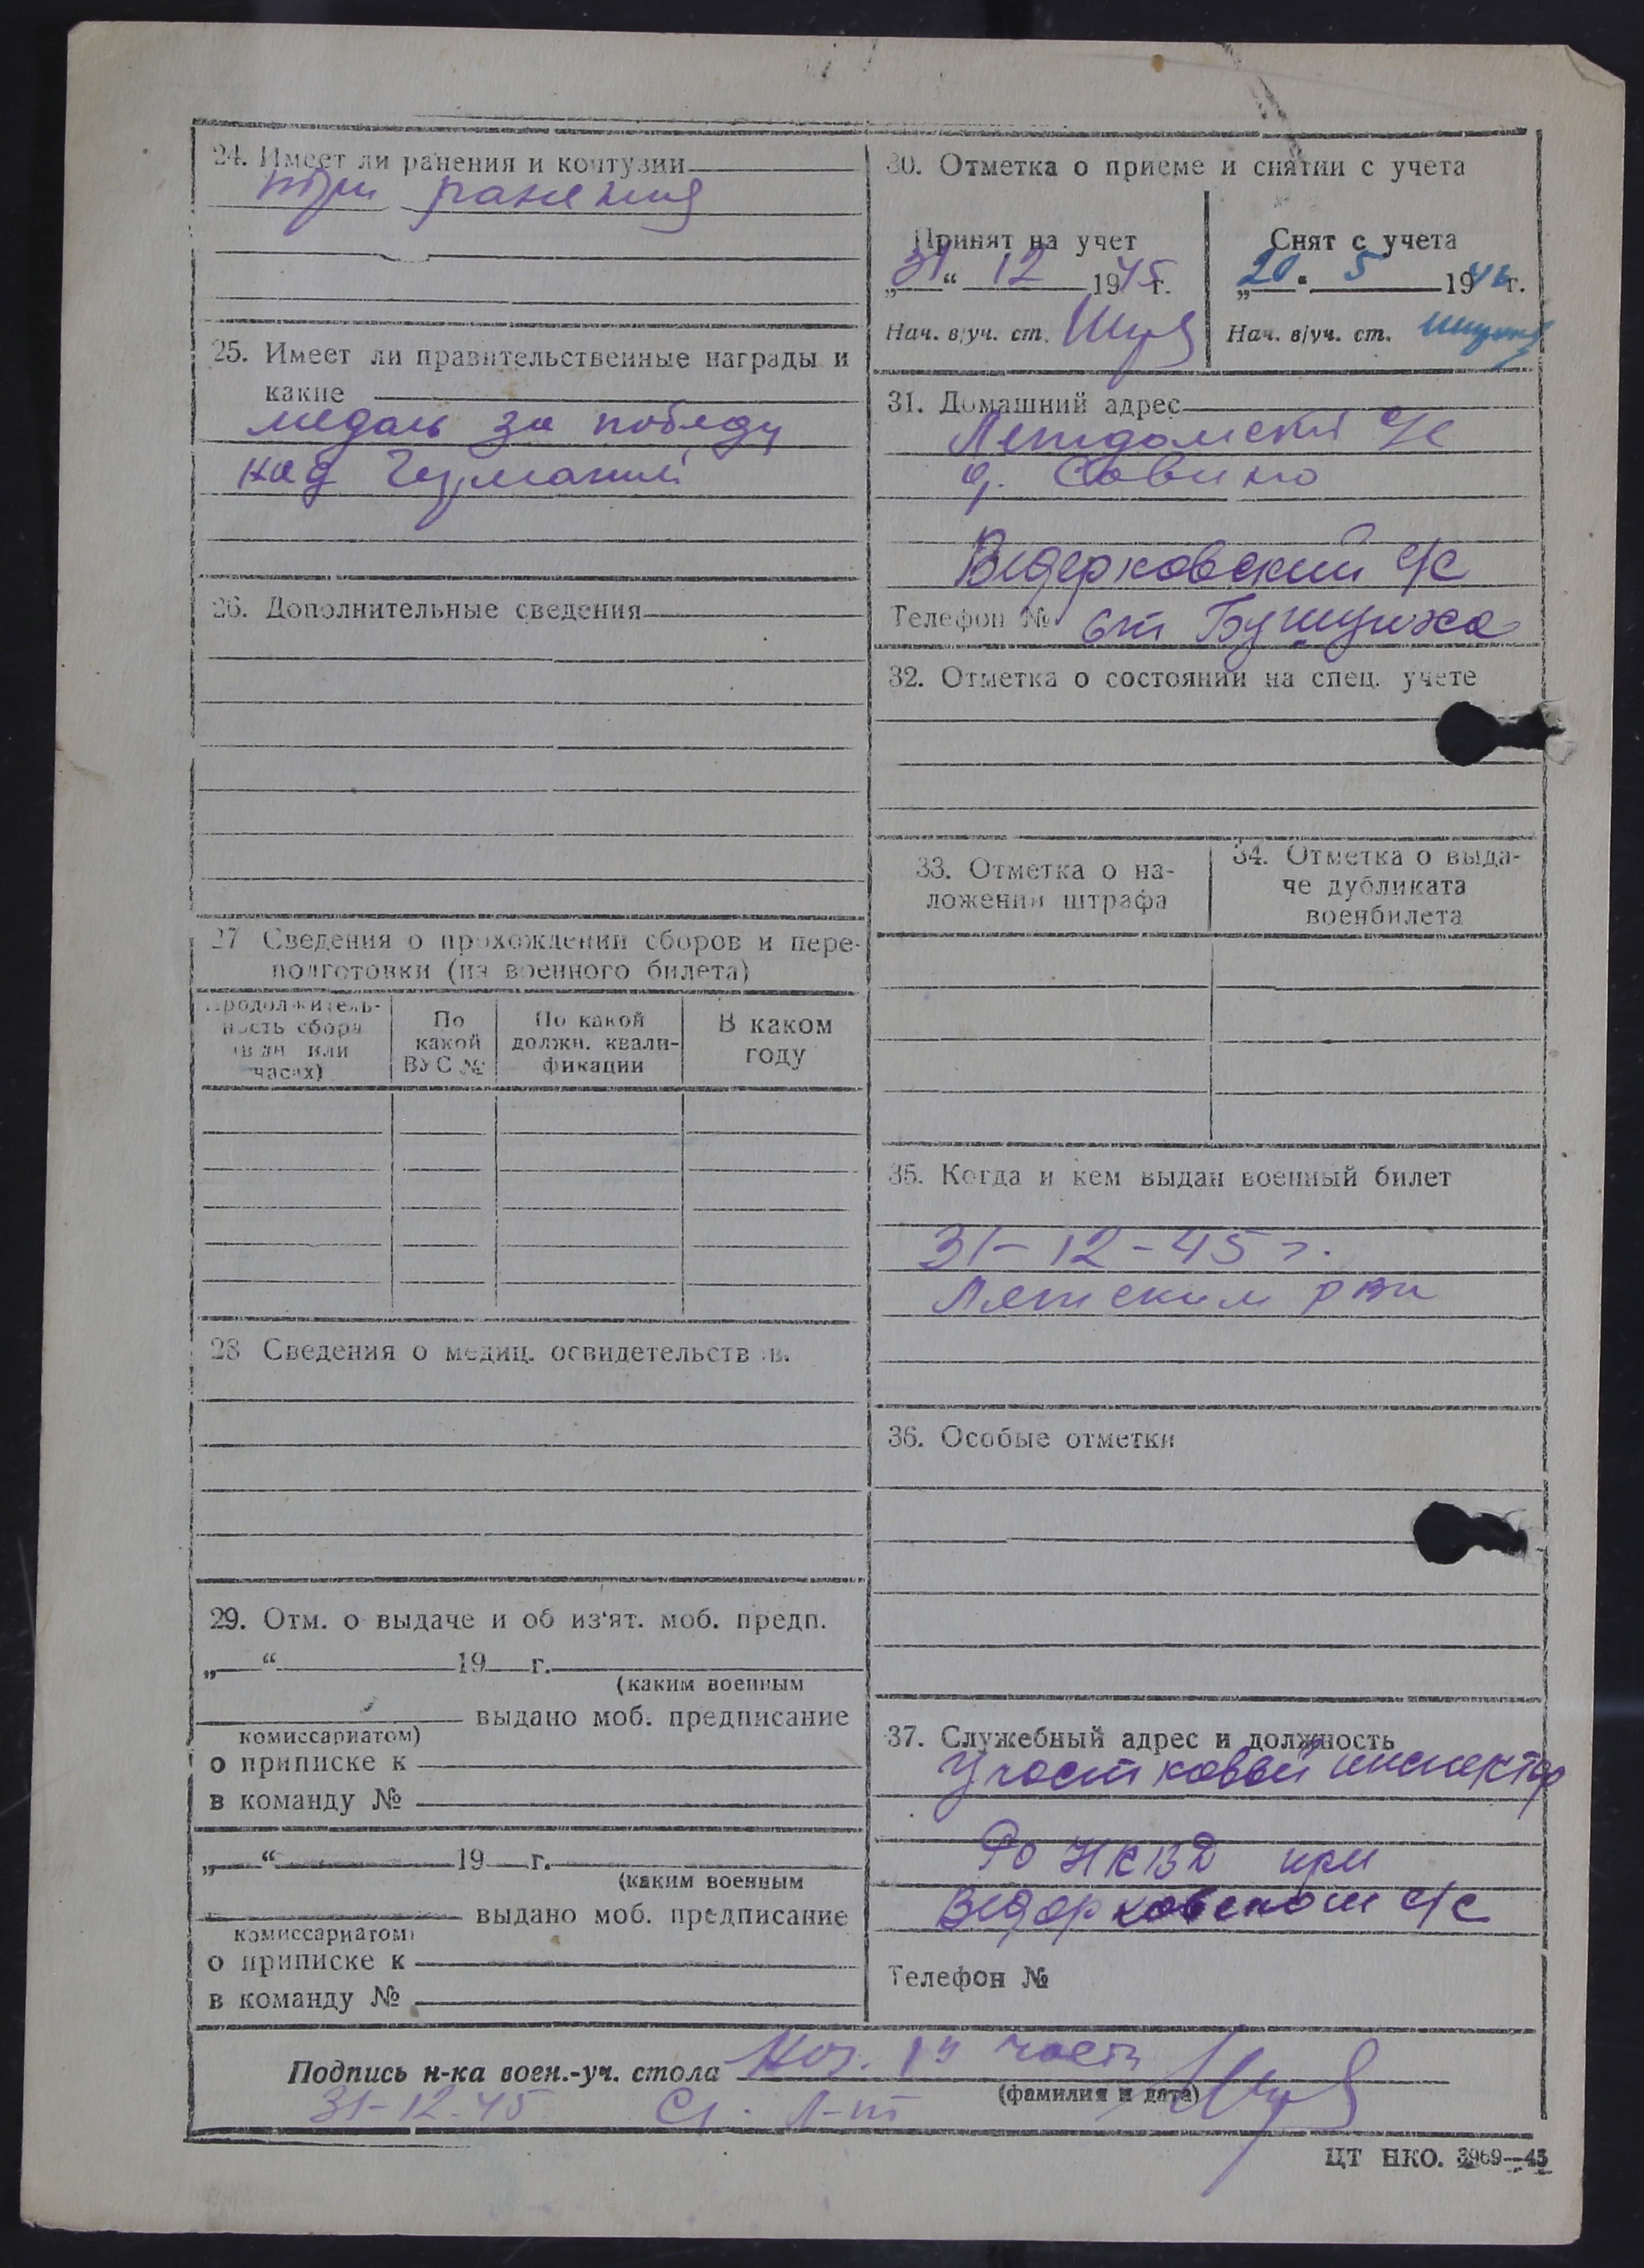 24. Имеет ли ранения и контузии
три ранения
25. Имеет ли правительственные награды и
какие
медаль за победу
над Германией
26. Дополнительные сведения
27 Сведения о прохождении сборов и пере-
подготовки (из военного билета)
Продолжитель-
ность сбора
(в дн. или
часах)
По
какой
ВУС №
По какой
должн. квали-
фикации
В каком
году
28 Сведения о медиц. освидетельств.
29. Отм. о выдаче и об из'ят. моб. предп.
„ “ 19 г.
(каким военным
выдано моб. предписание
комиссариатом)
о приписке к
в команду №
„ “ 19 г.
(каким военным
выдано моб. предписание
комиссариатом)
о приписке к
в команду №
30. Отметка о приеме и снятии с учета
Принят на учет
„31“ 12 1945 г.
Нач. в/уч. ст.
Снят с учета
„20“ 5 1946 г.
Нач. в/уч. ст.
31. Домашний адрес
с/с
д. Савино
Ведерковский с/с
Телефон № ст
32. Отметка о состоянии на спец. учете
33. Отметка о на-
ложении штрафа
34. Отметка о выда-
че дубликата
военбилета
35. Когда и кем выдан военный билет
31-12-45 г.
рвк
36. Особые отметки
37. Служебный адрес и должность
Участковый инспектор
РО НКВД при
Ведерковском с/с
Телефон №
Подпись н-ка воен.-уч. стола Нач. 1й части
(фамилия и дата)
31-12-45 Ст. л-т
ЦТ НКО. 3969—45